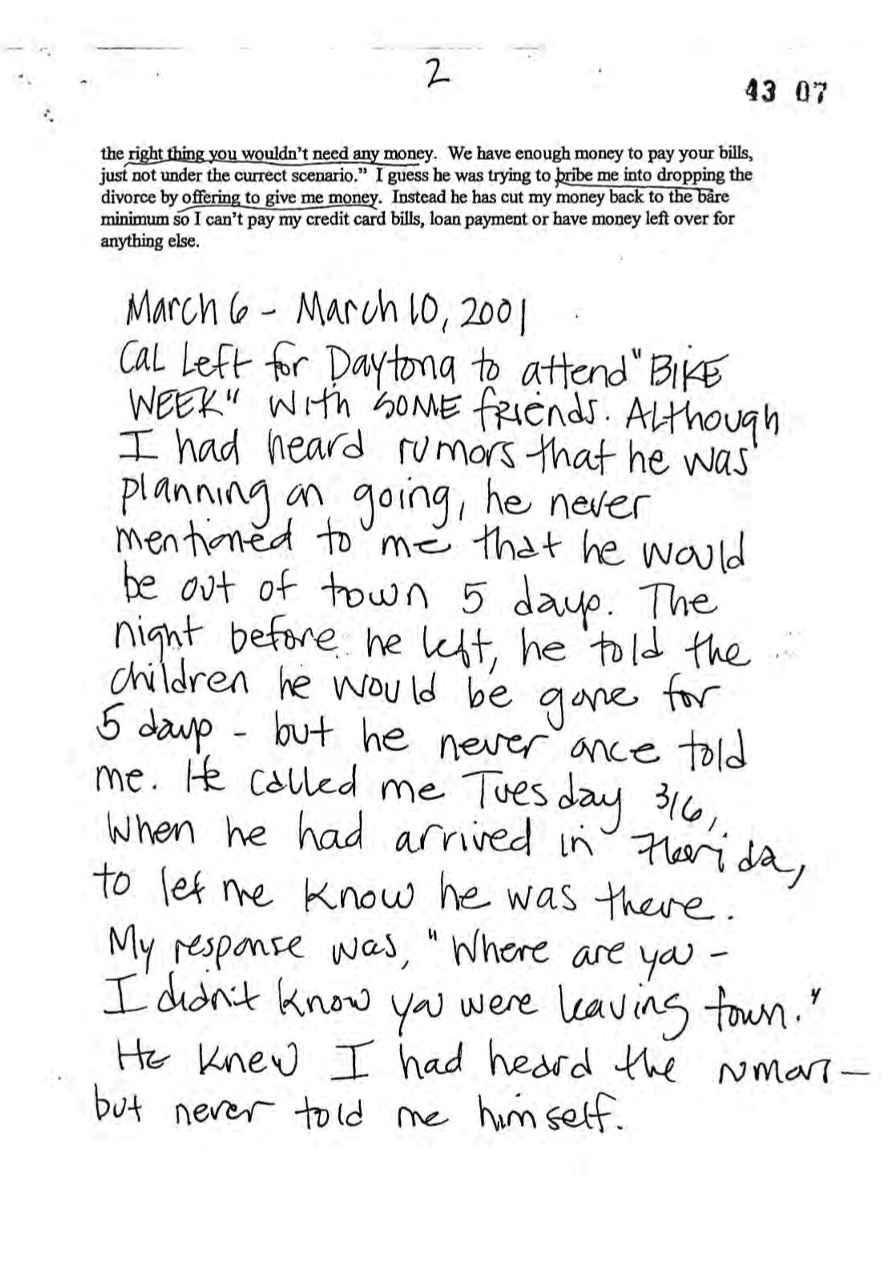 2
43 07
the right thing you wouldn't need any money. We have enough money to pay your bills,
just not under the currect scenario." I guess he was trying to bribe me into dropping the
divorce by offering to give me money. Instead he has cut my money back to the bare
minimum so I can't pay my credit card bills, loan payment or have money left over for
anything else.
March 6 - March 10, 2001
Cal Left for Daytona to attend "BIKE
WEEK" with SOME friends. Although
I had heard rumors that he was
planning on going, he never
mentioned to me that he would
be out of town 5 days. The
night before he left, he told the
children he would be gone for
5 days - but he never once told
me. He called me Tuesday 3/6,
When he had arrived in Florida,
to let me know he was there.
My response was, "Where are you -
I didn't know you were leaving town."
He knew I had heard the rumors -
but never told me himself.